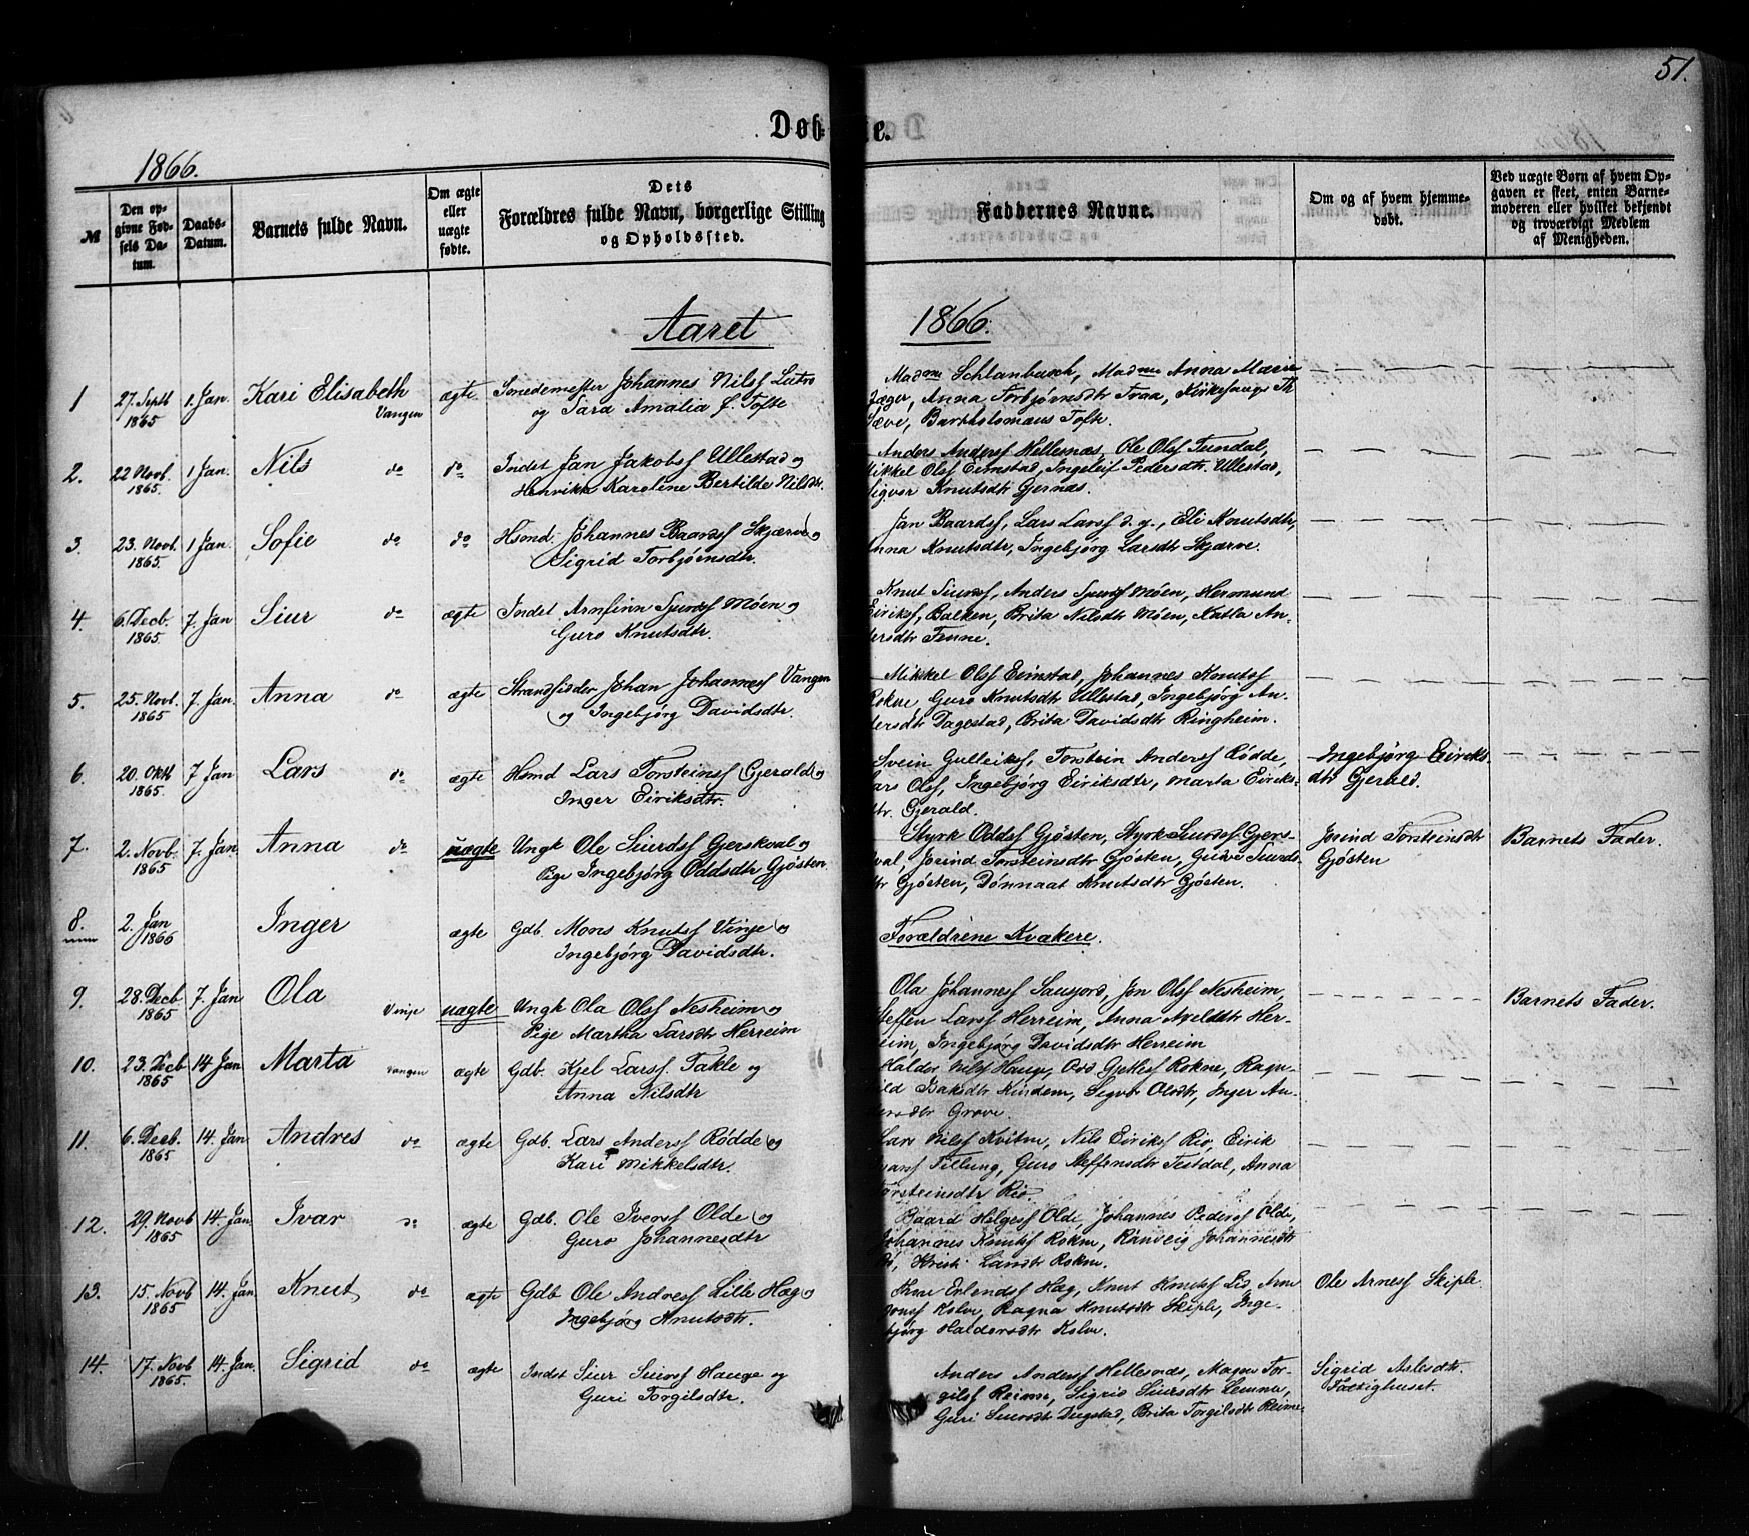 51.
Døb- e.
1866.
№
Den opgivne Fødsels Datum.
Daabs-Datum.
Barnets fulde Navn.
Om ægte eller uægte fødte.
Dets Forældres fulde Navn, borgerlige Stilling og Opholdssted.
Faddernes Navne.
Om og af hvem hjemmedøbt.
Ved uægte Børn af hvem Opgaven er skeet, enten Barnemoderen eller hvilket bekjendt og troværdigt Medlem af Menigheden.
Aaret 1866.
1 27. Septb 1865 1. Jan. Kari Elisabeth Vangen ægte Smedemester Johannes Nilss
og Sara Amalia f. Tofte
Madme Madme Anna Marie
Jæger, Anna Torbjørnsdtr Traa, Kirkesanger Th
Bartholomæus Tofte.
2. 22 Novb. 1865. 1 Jan. Nils do do Indst Jan Jakobss Ullestad og
Henrikka Karoline Bertilde Nilsdtr.
Anders Anderss Hellesnæs, Ole Olss Tundal,
Mikkel Olss Eimstad, Ingeleif Pedersdtr. Ullestad,
Sigvor Knutsdtr Gjernæs.
3. 23. Novb. 1865. 1 Jan. Sofie do do Hsmd. Johannes Baardss Skjærve og
Sigrid Torbjørnsdtr.
Jan Baardss, Lars Larss d. y., Eli Knutsdtr,
nna Knutsdtr, Ingebjørg Larsdtr Skjærve.
4. 6. Decb. 1865. 7. Jan Siur do ægte Indst Arnfinn Sjurdss Møen og
Guro Knutsdtr.
Knut Siurss, Anders Sjurdss Møen, Hermund
Eirikss, Balken, Brita Nilsdtr Møen, Katla An-
dersdtr Tenne.
5. 25. Novb. 1865 7. Jan. Anna do ægte Strandsidder Johan Johanness Vangen
og Ingebjørg Davidsdtr.
Mikkel Olss Eimstad, Johannes Knutss
Rokne, Guro Knutsdtr Ullestad, Ingebjørg An-
dersdtr Dagestad, Brita Davidsdtr Ringheim.
6. 20. Oktb 1865. 7 Jan Lars do ægte Hsmd Lars Torsteinss Gjerald og
Inger Eiriksdtr.
Svein Gulleikss, Torstein Anderss Rødde,
ars Olss, Ingebjørg Eiriksdtr, Marta Eiriks-
dtr. Gjerald.
Ingebjørg Eiriks-
dtr Gjerald.
7. 2. Novb. 1865 7. Jan. Anna do uægte Ungk Ole Siurds Gjerskval og
Pige Ingebjørg Oddsdtr Gjøsten.
Styrk Oddss Gjøsten, Styrk Siurdss Gjers-
val, Jorind Torsteinsdtr Gjøsten, Siurds-
dtr Gjøsten, Knutsdtr Gjøsten.
Jorind Torsteinsdtr
Gjøsten
Barnets Fader.
8. 2. Jan 1866 Inger ægte Gdb. Mons Knutss Vinje og
Ingebjørg Davidsdtr.
Forældrene Kvækere.
9. 28. Decb 1865 7. Jan Ola Vinje uægte Ungk Ola Olss Nesheim og
Pige Martha Larsdtr Herreim
Ola Johanness Saugjord, Jon Olss Nesheim,
Steffen Larss Herreim, Anna Her-
eim, Ingebjørg Davidsdtr Herreim
Barnets Fader.
10. 23. Decb 1865 14 Jan Marta Vangen ægte Gdb. Kjel Larss. Takle og
Anna Nilsdtr
Halder Nilss Haug, Rokne, Ragn-
ild Baksdtr Kindem, Olsdtr, Inger An-
dersdtr Grove.
11. 6. Decb. 1865 14. Jan Andres do ægte Gdb. Lars Anderss Rødde og
Kari Mikkelsdtr.
Lars Nilss Nils Eirikss Rio, Eirik
Tillung, Guro Steffensdtr Anna
Torsteinsdtr Rio.
12. 29. Novb 1865 14. Jan. Ivar do ægte Gdb. Ole Iverss Olde og
Guro Johannesdtr
Baard Helgess Olde, Johannes Pederss Olde,
Johannes Knutss Rokne, Ranveig Johannesdtr
Rokne.
13. 15. Novb 1865 14. Jan Knut do ægte Gdb Ole Andress Lille Hæg og
Ingebjørg Knutsdtr.
Erlendss Hæg, Knut Knutss Lid, Arne
Kolve, Ragna Knutsdtr Skiple, Inge-
bjørg Haldorsdtr Kolve.
Ole Arness Skiple.
14. 17. Novb 1865. 14. Jan. Sigrid do ægte Indst Siur Siurss Hauge og
Guri Torgilsdtr.
Anders Anderss Hellesnæs, Magne Tor-
gilss Reime, Sigrid Siursdtr Lemme,
Guri Siursdtr Dugstad, Brita Torgilsdtr Reime.
Sigrid Aslesdtr.
Fattighuset.